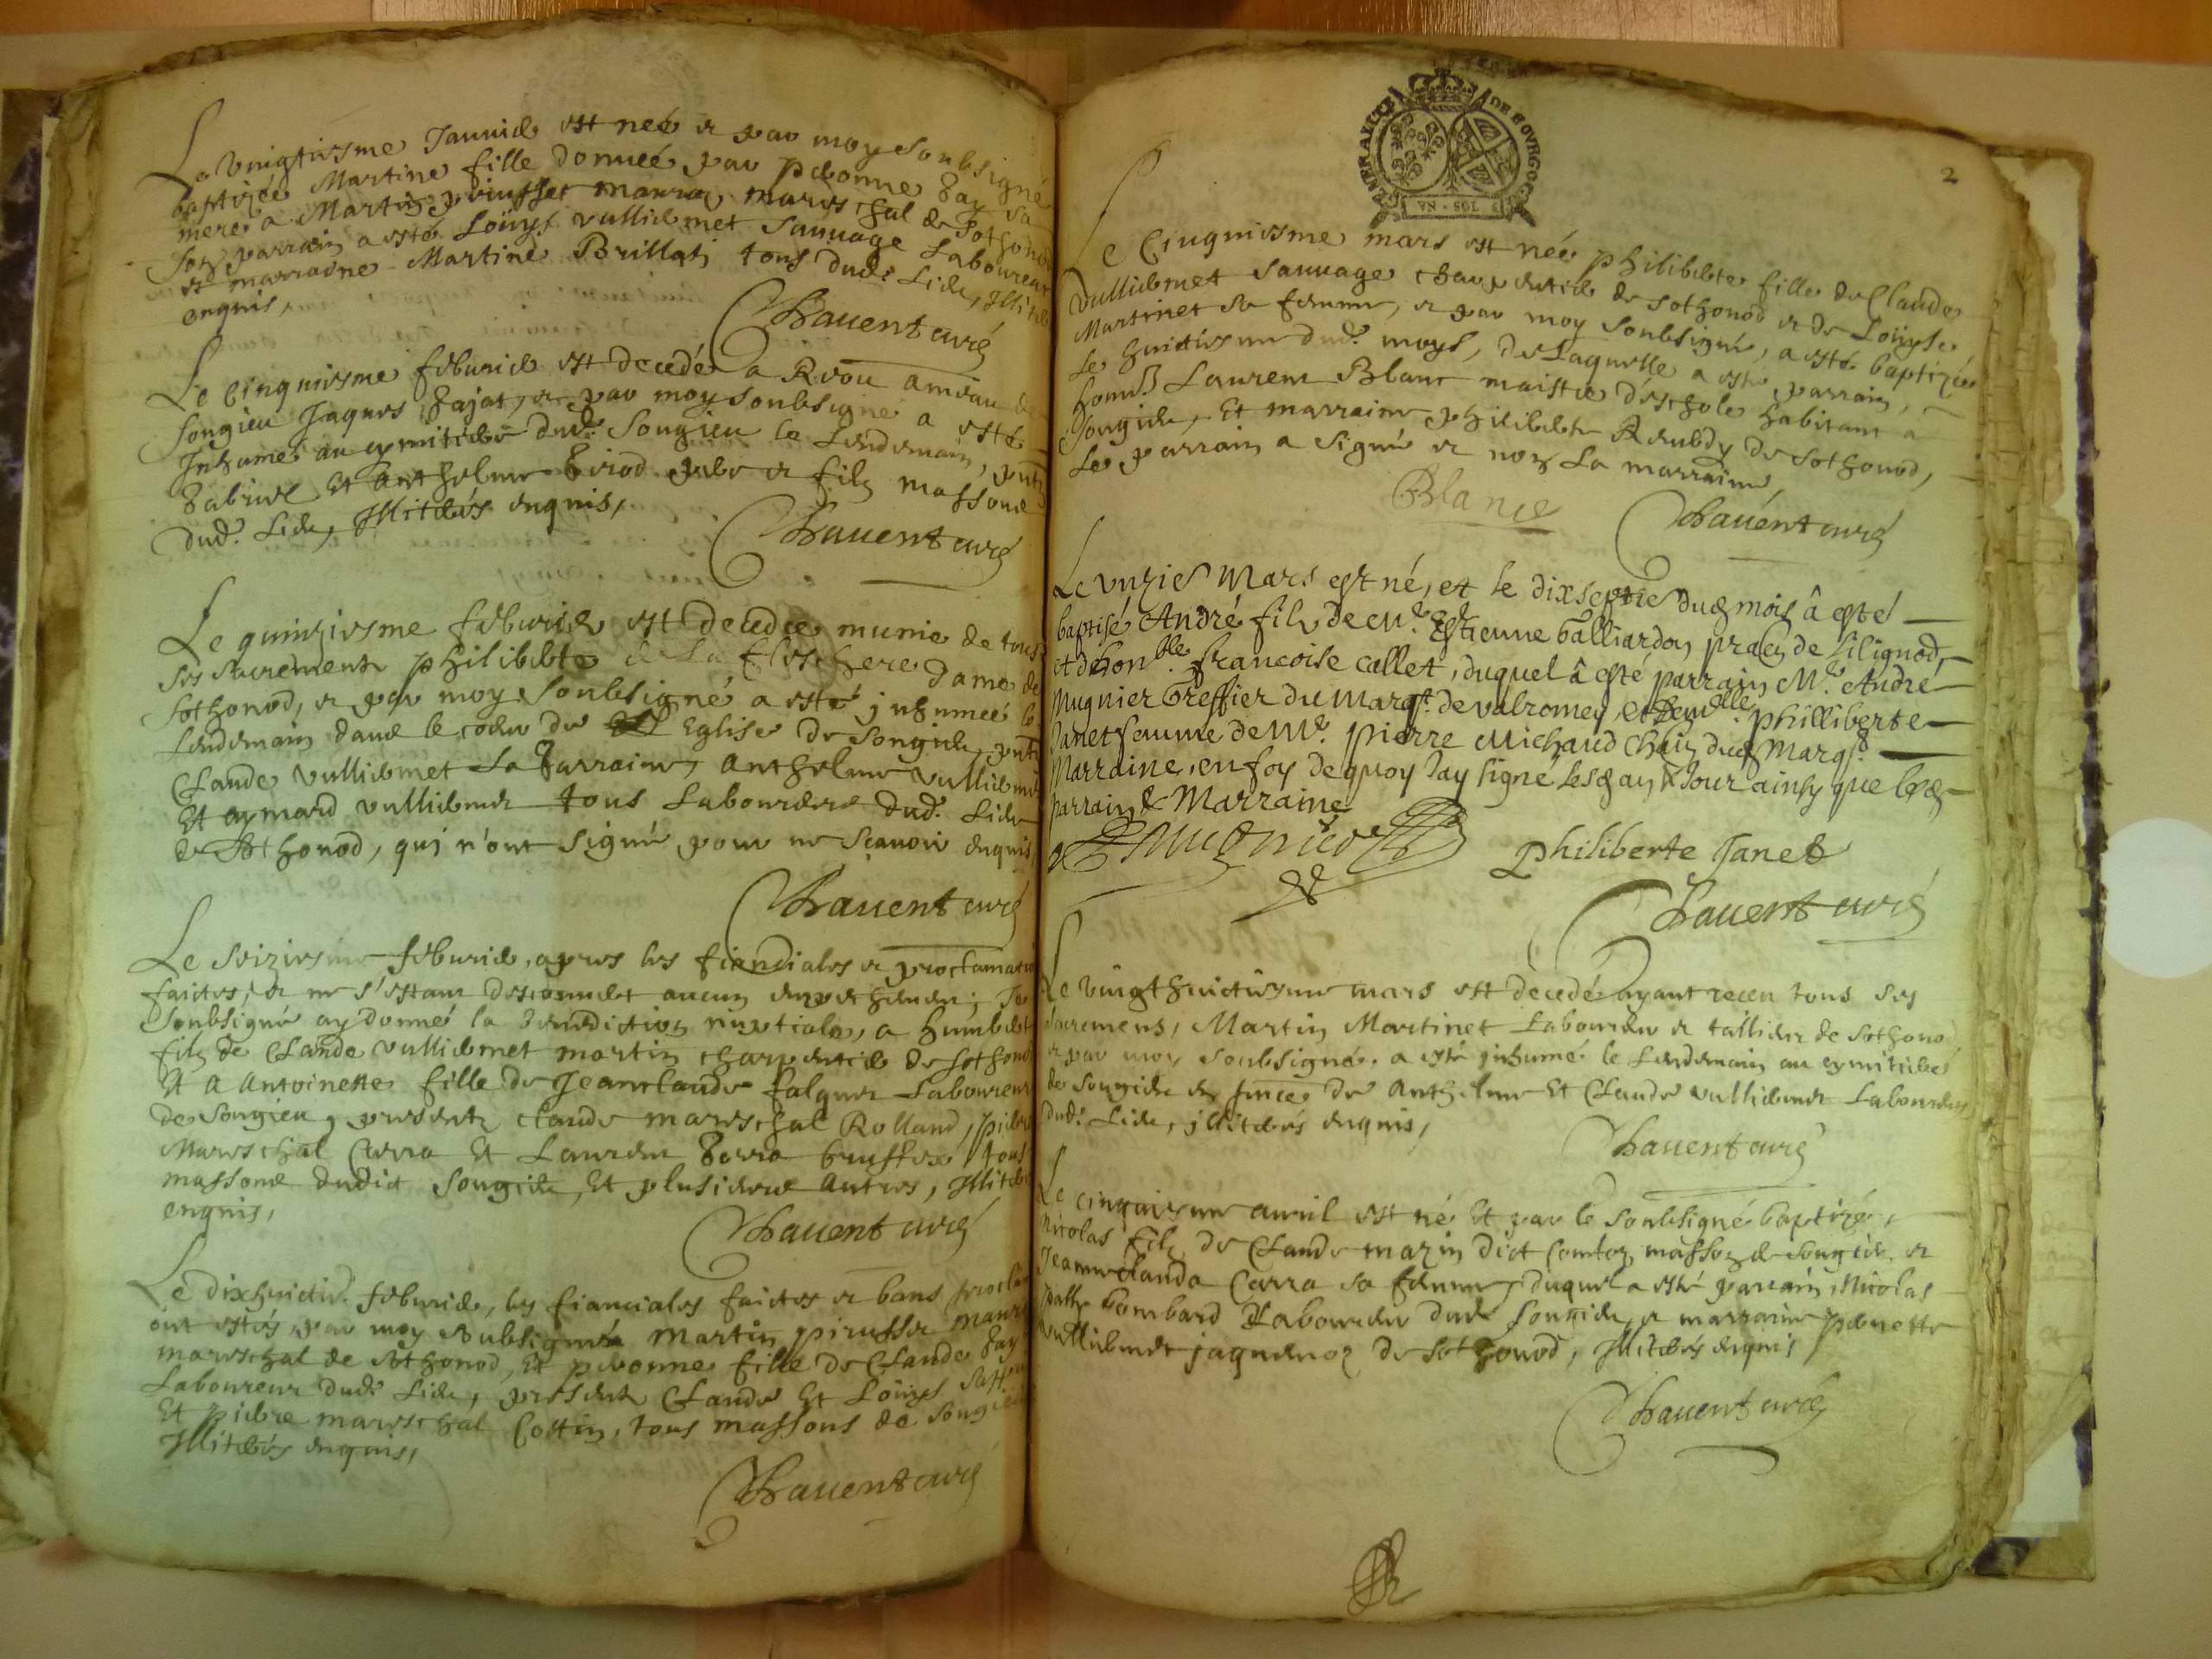 Le vingtiesme Januier est neé et par moy soubsigné
baptizée Martine fille donneé par Peronne Gay sa
mere a Martin pirusset maurez mareschal de Sothonod
son parrain a esté Loüys vulliermet Sauuage Laboureur
et marraine Martine Brillati tous dud. Lieu, Illiterés
enquis,
Chauent curé
Le cinquiesme feburier est decedé a Rvou ameau de
songieu Jaques Gajat, et par moy soubsigné a esté
Inhumé au cymitiere dud. Songieu le Lendemain, pnts
Gabriel Et anthelme Girod pere et filz massons
dud. Lieu, Illiterés enquis,
Chauent curé
Le quinziesme feburier est decedeé munie de tous
ses sacrements philiberte de La flechere dame de
sothonod, et par moy soubsigné a esté inhumeé le
Lendemain dans le coeur de Eglise de songieu, pnts
Claude vulliermet La Jarraine, anthelme vulliermet
Et aymard vulliermet tous Laboureurs dud. Lieu
de Sothonod, qui n'ont signé pour ne Scauoir enquis
Chauent curé
Le seiziesme feburier, apres les fiancialles et proclamations
faictes, et ne s'estant descouuert aucun empechement, Je
soubsigné ay donné la benediction nuptiale, a humbert
filz de Claude vulliermet martin charpentier de Sothonod
Et a Antoinette fille de Jeanclaude falquet Laboureur
de Songieu, presents claude mareschal Rolland, pierre
Mareschal Carra Et Laurent Serra bruffex, tous
massons dudict Songieu, Et plusieurs autres, Illiterés
enquis,
Chauent curé
Le dixhuictie. feburier, les fianciales faictes et bans proclamés
ont estés par moy soubsignés Martin pirusset maurez
mareschal de Sothonod, Et peronne fille de Claude Gay
Laboureur dud. Lieu, presents Claude Et Loüys
Et pierre mareschal Cottin, tous massons de Songieu
Illiterés enquis,
Chauent curé
GENERALITE DE BOURGOGNE
VN · SOL
2
Le Cinquiesme mars est neé philiberte fille de Claude
vulliermet sauuage charpentier de sothonod et de Loüyse
Martinet sa femme, et par moy soubsigné, a esté baptizée
Le huictiesme dud. moys, de Laquelle a esté parrain,
Laurent Blanc maistre d'eschole habitant a
Songieu, Et marraine philiberte Reuerdy de Sothonod,
Le parrain a signé et non La marraine,
Blanc
Chauent curé
Le vnzie Mars est né, et le dixseptie dud mois â esté
baptisé André fils de M.e Estienne Galliardon, pratn de Lilignod,
et de honble francoise callet, duquel â esté parrain M.e André
Mugnier Greffier du Marqt. de valromey, et Demlle. philliberte
Janet femme de M.e pierre Michaud Chlin dud Marqt.
Marraine, en foy de quoy Jay signé lesd an & Jour ainsy que lesd
parrain & Marraine
Mugnier
Philiberte Janet
Chauent curé
Le vingthuictiesme mars est decedé ayant receu tous ses
sacremens, Martin Martinet Laboureur et tallieur de Sothonod
et par moy soubsigné, a esté inhumé le Lendemain au cymitiere
de Songieu en pnce de Anthelme Et Claude vulliermet Laboureurs
dud. Lieu, illiterés enquis,
Chauent curé
Le cinquiesme auril est né Et par le soubsigné baptizé,
Nicolas filz de Claude mazin dict Comtoz masson de songieu et
Jeanneclauda Carra sa femme, duquel a esté parrain Nicolas
bombard Laboureur dud songieu, et marraine pernette
vulliermet jaquenoz de Sothonod, Illiterés enquis,
Chauent curé